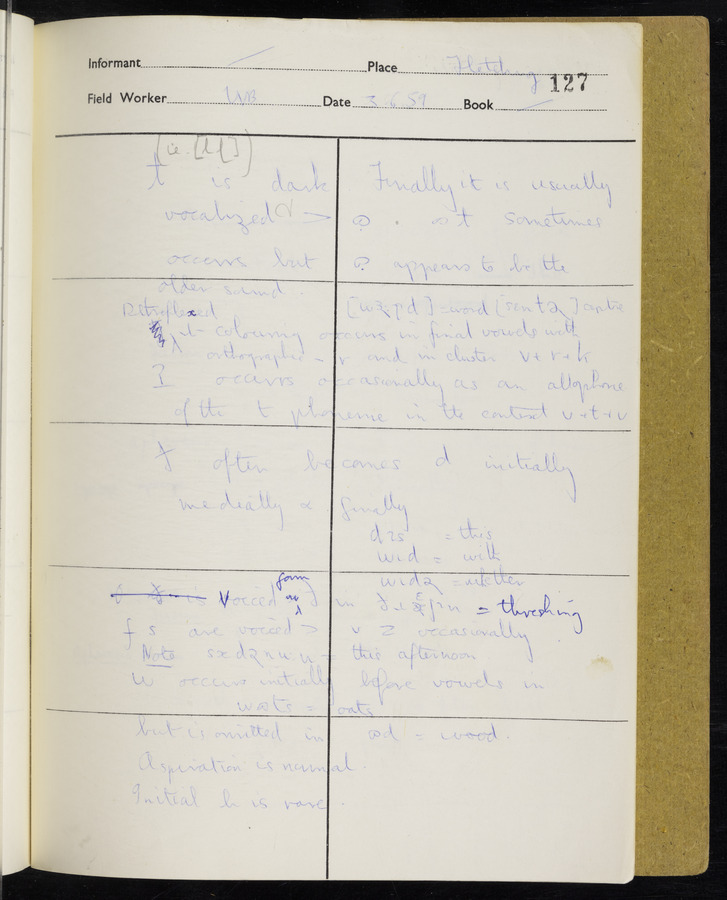 Informant Place Fletching 127
Field Worker WB Date 3.6.59 Book
(i.e. [ɫ])
ɫ is dark Finally it is usually
vocalized > ɷ. ɷɫ sometimes
occurs but ɷ appears to be the
older sound.
Retroflexed [wəːɽd] = word
colouring occurs in final vowels with
orthographic - r and in cluster v + r + k
ʔ occurs occasionally as an allophone
of the t phoneme in the context v + t + v
ð often becomes d initially
medially & finally
dɪs = this
wɪd = with
Voiced form in = threshing
f s are voiced > v z occasionally
Note this afternoon
w occurs initially before vowels in
= oats
but is omitted in ɷd = wood.
Aspiration is normal.
Initial h is rare.